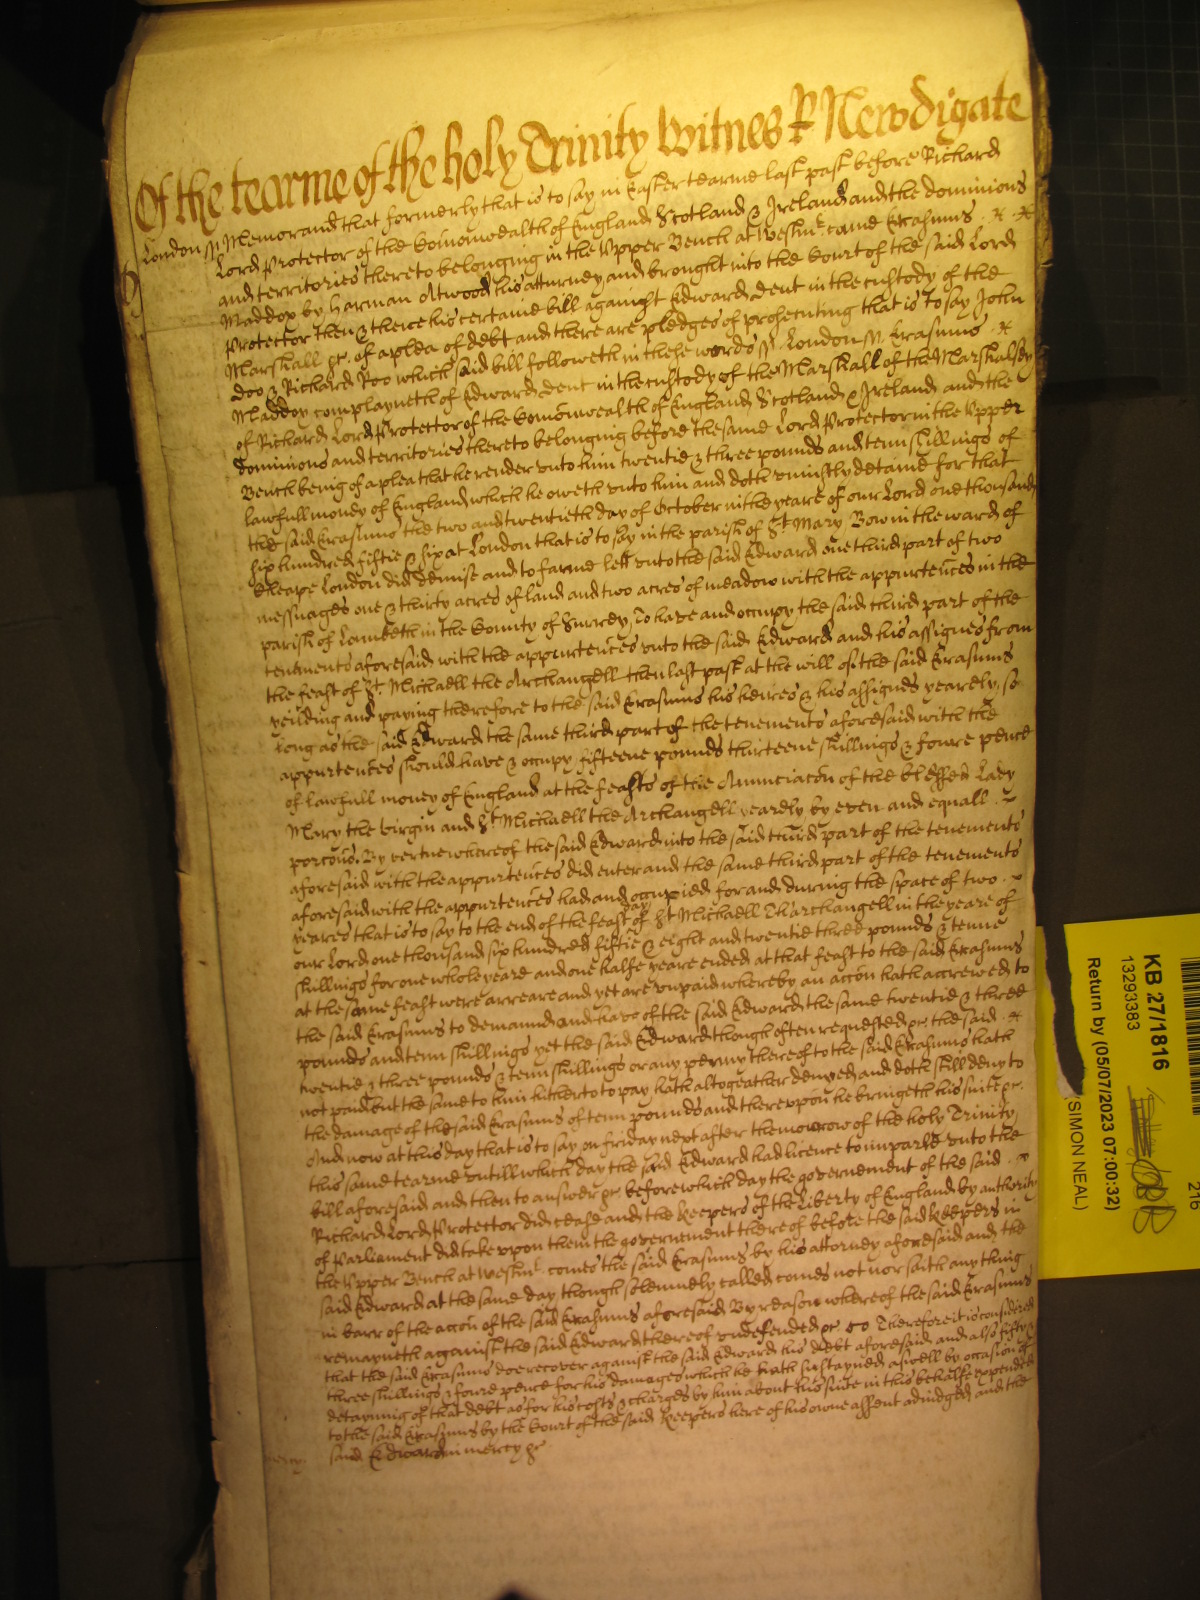 Of the tearme of the holy Trinity Witnes R Newdigate
London ss Memorand that formerly that is to say in Easter tearme last past before Richard
Lord Protector of the Comonwealth of England Scotland & Ireland and the dominions
and territories thereto belonging in the Upper Bench at Westmr came Erasmus
Maddox by Harman Atwood his atturney and brought into the Court of the said Lord
Protector then & there his certaine bill against Edward Dent in the custody of the
Marshall &c. of a plea of debt and there are pledges of prosecuting that is to say John
Doo & Richard Roo which said bill followeth in these words ss. London ss. Erasmus
Maddox complayneth of Edward Dent in the custody of the Marshall of the Marshalsey
of Richard Lord Protector of the Comonwealth of England Scotland & Ireland and the
dominions and territories thereto belonging before the same Lord Protector in the Upper
Bench being of a plea that he render unto him twentie & three pounds and tenn shillings of
lawfull money of England which he oweth unto him and doth uniustly detaine for that
the said Erasmus the two and twentieth day of October in the yeare of our Lord one thousand
six hundred fiftie & six at London that is to say in the parish of St Mary Bow in the ward of
Cheape London did demise and to farme lett unto the said Edward one third part of two
messuages one & thirty acres of land and two acres of meadow with the appurtences in the
parish of Lambeth in the County of Surrey, To have and occupy the said third part of the
tenements aforesaid with the appurtences unto the said Edward and his assignes from
the feast of St. Michaell the Archangell then last past at the will of the said Erasmus
yeilding and paying therefore to the said Erasmus his heires & his assignes yearely, so
long as the said Edward the same third part of the tenements aforesaid with the
appurtences should have & occupy fifteene pounds thirteene shillings & foure pence
of lawfull money of England at the feasts of the Anunciacon of the blessed Lady
Mary the Virgin and St Michaell the Archangell yearely by even and equall
porcons. By vertue whereof the said Edward into the said third part of the tenements
aforesaid with the appurtences did enter and the same third part of the tenements
aforesaid with the appurtences had and occupied for and during the space of two
yeares that is to say to the end of the feast day of St Michaell Tharchangell in the yeare of
our Lord one thousand six hundred fiftie & eight and twentie three pounds & tenne
shillings for one whole yeare and one halfe yeare ended at that feast to the said Erasmus
at the same feast were arreare and yet are unpaid whereby an accon hath accrewed to
the said Erasmus to demaund and have of the said Edward the same twentie & three
pounds and tenn shillings yet the said Edward though often requested &c. the said
twentie & three pounds & tenn shillings or any penny thereof to the said Erasmus hath
not paid but the same to him hitherto to pay hath altogeather denyed and doth still deny to
the damage of the said Erasmus of tenn pounds and thereupon he bringeth his suite &c.
And now at this day that is to say on friday next after the morrow of the holy Trinity
this same tearme untill which day the said Edward had licence to imparle unto the
bill aforesaid and then to answer &c before which day the governement of the said
Richard Lord Protector did cease and the Keepers of the Liberty of England by authority
of Parliament did take upon them the governement thereof before the said Keepers in
the Upper Bench at Westmr. comes the said Erasmus by his attorney aforesaid and the
said Edward at the same day though solemnely called comes not nor saith any thing
in barr of the accon of the said Erasmus aforesaid By reason whereof the said Erasmus
remayneth against the said Edward thereof undefended &c Therefore it is considered
that the said Erasmus doe recover against the said Edward his debt aforesaid and also fifty &
three shillings & foure pence for his damages which he hath sustayned aswell by occasion of
detayning of that debt as for his costs & charges by him about his suite in this behalfe expended
to the said Erasmus by the Court of the said Keepers here of his owne assent adiudged and the
said Edward in mercy &c
KB 27/1816
13293383
Return by (05/07/2023 07:00:32)
(SIMON NEAL)
216